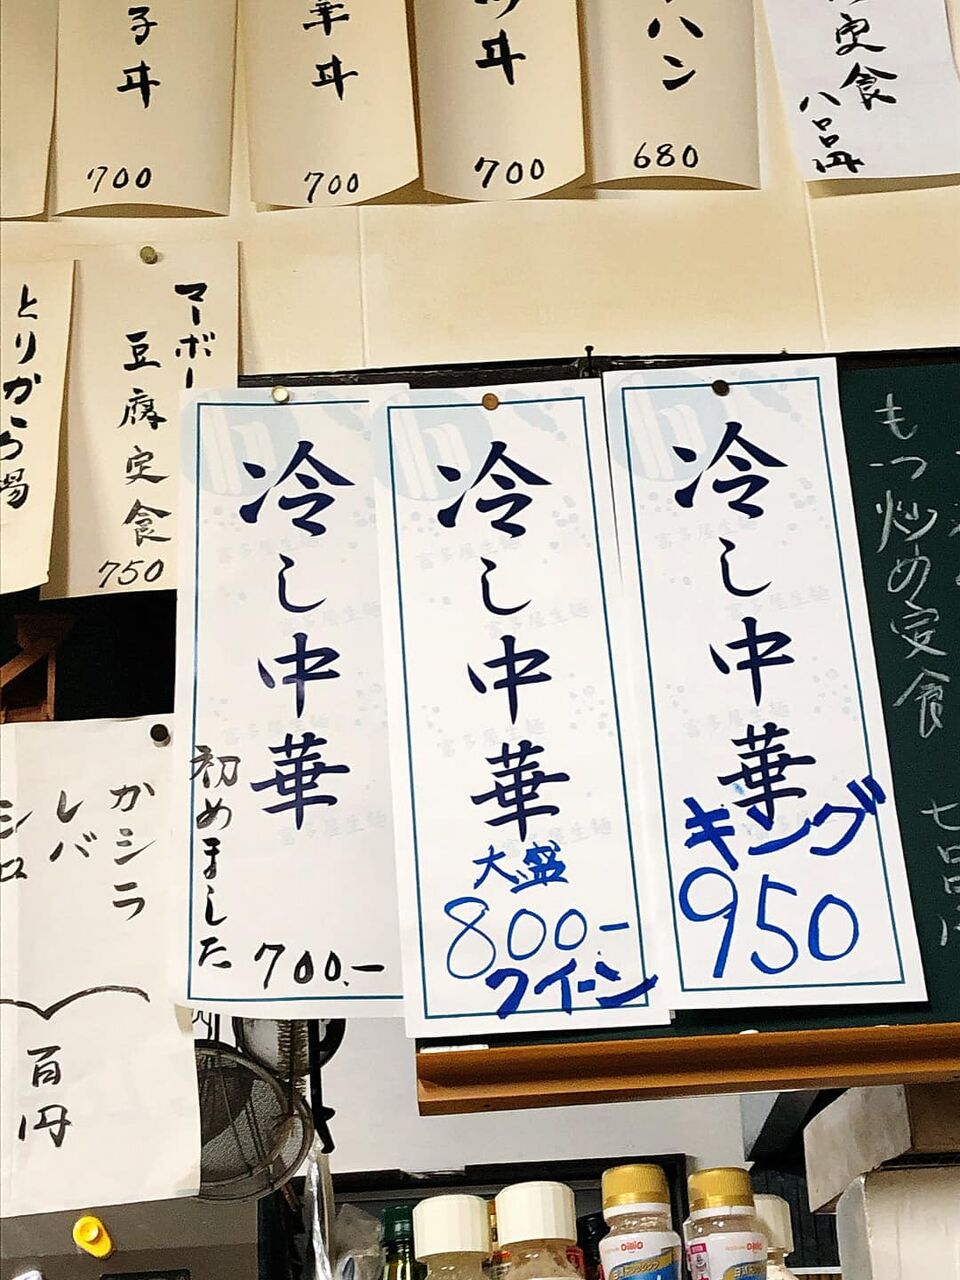 子丼
700
華丼
700
丼
700
ハン
680
定食
八百円
マーボー
豆腐定食
750
とりから揚
冷し中華
初めました
700.-
冷し中華
大盛
800-
クイーン
冷し中華
キング
950
もつ炒め定食
カシラ
レバ
シロ
百円
富多屋生麺